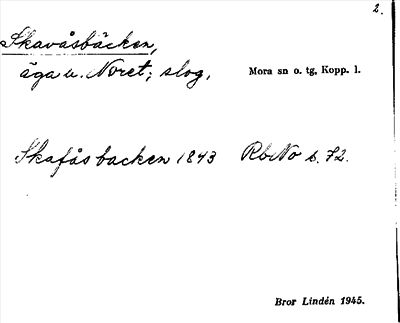 2.
Skavåsbäcken,
äga u. Noret; slog,
Mora sn o. tg, Kopp. l.
Skafås backen 1843 RbNo s. 72.
Bror Lindén 1945.